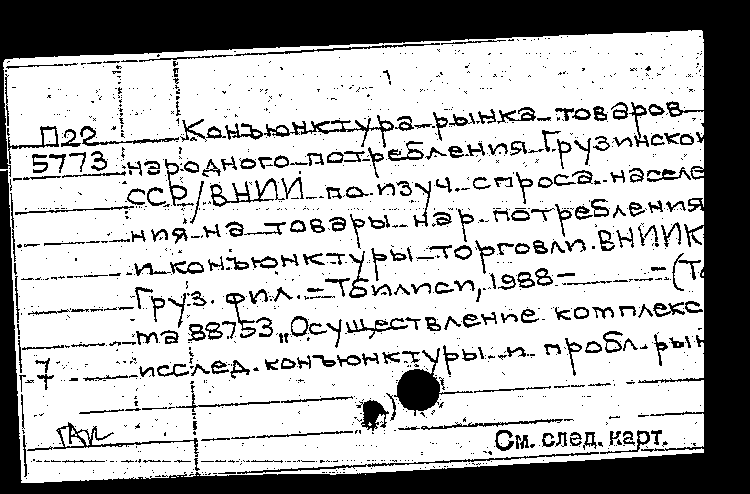 1
П22 Конъюнктура рынка товаров
5773 народного потребления Грузинской
ССР/ВНИИ по изуч. спроса населе
ния на товары нар. потребления
и конъюнктуры торговли. ВНИИК
Груз. фил. – Тбилиси, 1988 – – (Те
ма 88753 „Осуществление комплекс
7 исслед. конъюнктуры и пробл. рын
См. след. карт.